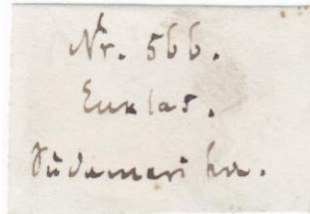 Nr. 566.
Euklas.
Südamerika.